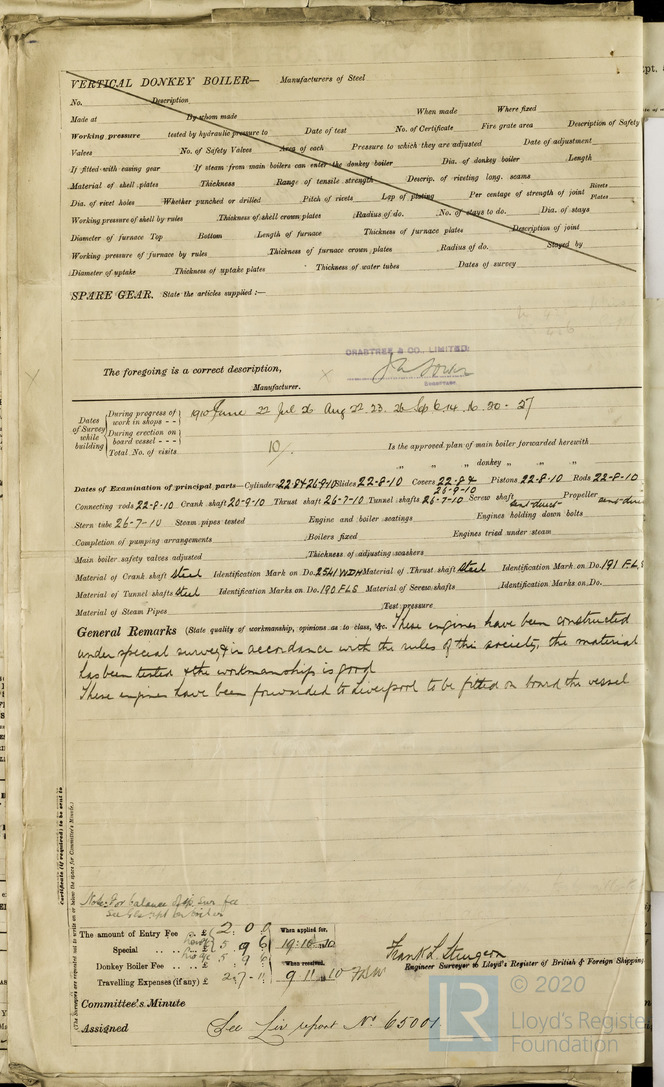 VERTICAL DONKEY BOILER— Manufacturers of Steel
No. Description
Made at By whom made When made Where fixed
Working pressure tested by hydraulic pressure to Date of test No. of Certificate Fire grate area Description of Safety
Valves No. of Safety Valves Area of each Pressure to which they are adjusted Date of adjustment
If fitted with easing gear If steam from main boilers can enter the donkey boiler Dia. of donkey boiler Length
Material of shell plates Thickness Range of tensile strength Descrip. of riveting long. seams
Dia. of rivet holes Whether punched or drilled Pitch of rivets Lap of plating Per centage of strength of joint Rivets Plates
Working pressure of shell by rules Thickness of shell crown plates Radius of do. No. of stays to do. Dia. of stays
Diameter of furnace Top Bottom Length of furnace Thickness of furnace plates Description of joint
Working pressure of furnace by rules Thickness of furnace crown plates Radius of do. Stayed by
Diameter of uptake Thickness of uptake plates Thickness of water tubes Dates of survey
SPARE GEAR. State the articles supplied :—
CRABTREE & CO., LIMITED
The foregoing is a correct description,
Manufacturer.
Dates of Survey while building
During progress of work in shops - - 1910 June 22 Jul 26 Aug 22. 23. 26 Sep 6. 14. 16. 20 - 27
During erection on board vessel - - -
Total No. of visits 10/. Is the approved plan of main boiler forwarded herewith
" " " donkey " " "
Dates of Examination of principal parts—Cylinders 22-8 & 26-9-10 Slides 22-8-10 Covers 22-8 & 26-9-10 Pistons 22-8-10 Rods 22-8-10
Connecting rods 22-8-10 Crank shaft 20-9-10 Thrust shaft 26-7-10 Tunnel shafts 26-7-10 Screw shaft Propeller
Stern tube 26-7-10 Steam pipes tested Engine and boiler seatings Engines holding down bolts
Completion of pumping arrangements Boilers fixed Engines tried under steam
Main boiler safety valves adjusted Thickness of adjusting washers
Material of Crank shaft Steel Identification Mark on Do. 2541 WDH Material of Thrust shaft Steel Identification Mark on Do. 191 F.L.S
Material of Tunnel shafts Steel Identification Marks on Do. 190 FLS Material of Screw shafts Identification Marks on Do.
Material of Steam Pipes Test pressure
General Remarks (State quality of workmanship, opinions as to class, &c. These engines have been constructed
under special survey & in accordance with the rules of this society, the material
has been tested & the workmanship is good
These engines have been forwarded to Liverpool to be fitted on board the vessel
Certificate (if required) to be sent to
(The Surveyors are requested not to write on or below the space for Committee's Minute.)
Note: For balance of Sp. Sur. fee
The amount of Entry Fee .. £ 2 . 0 . 0 When applied for,
Special .. .. .. £ 5 . 9 . 6 19.10.10
Donkey Boiler Fee .. .. £ 5 . 9 . 6 When received,
Travelling Expenses (if any) £ 2 . 7 . 11 9.11.10
Frank L. Sturgeon
Engineer Surveyor to Lloyd's Register of British & Foreign Shipping
Committee's Minute
Assigned See Liv report No 65001
LR © 2020
Lloyd's Register
Foundation